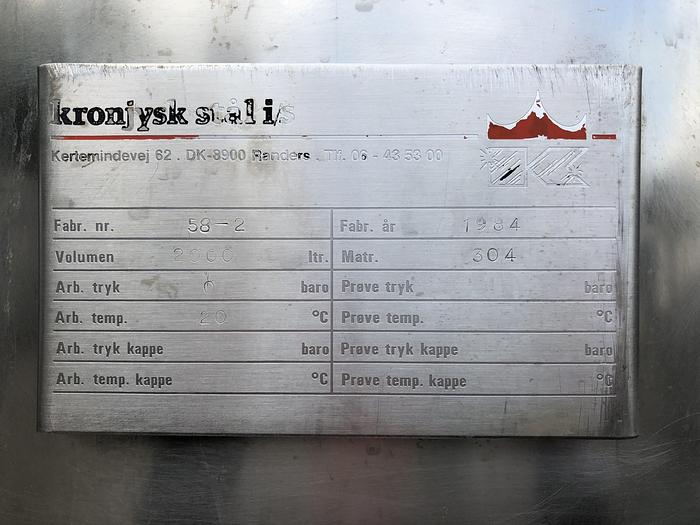 kronjysk stål i/s
Kertemindevej 62 . DK-8900 Randers . Tlf. 06 - 43 53 00
Fabr. nr. 58-2 Fabr. år 1984
Volumen 2000 ltr. Matr. 304
Arb. tryk 0 baro Prøve tryk baro
Arb. temp. 20 °C Prøve temp. °C
Arb. tryk kappe baro Prøve tryk kappe baro
Arb. temp. kappe °C Prøve temp. kappe °C